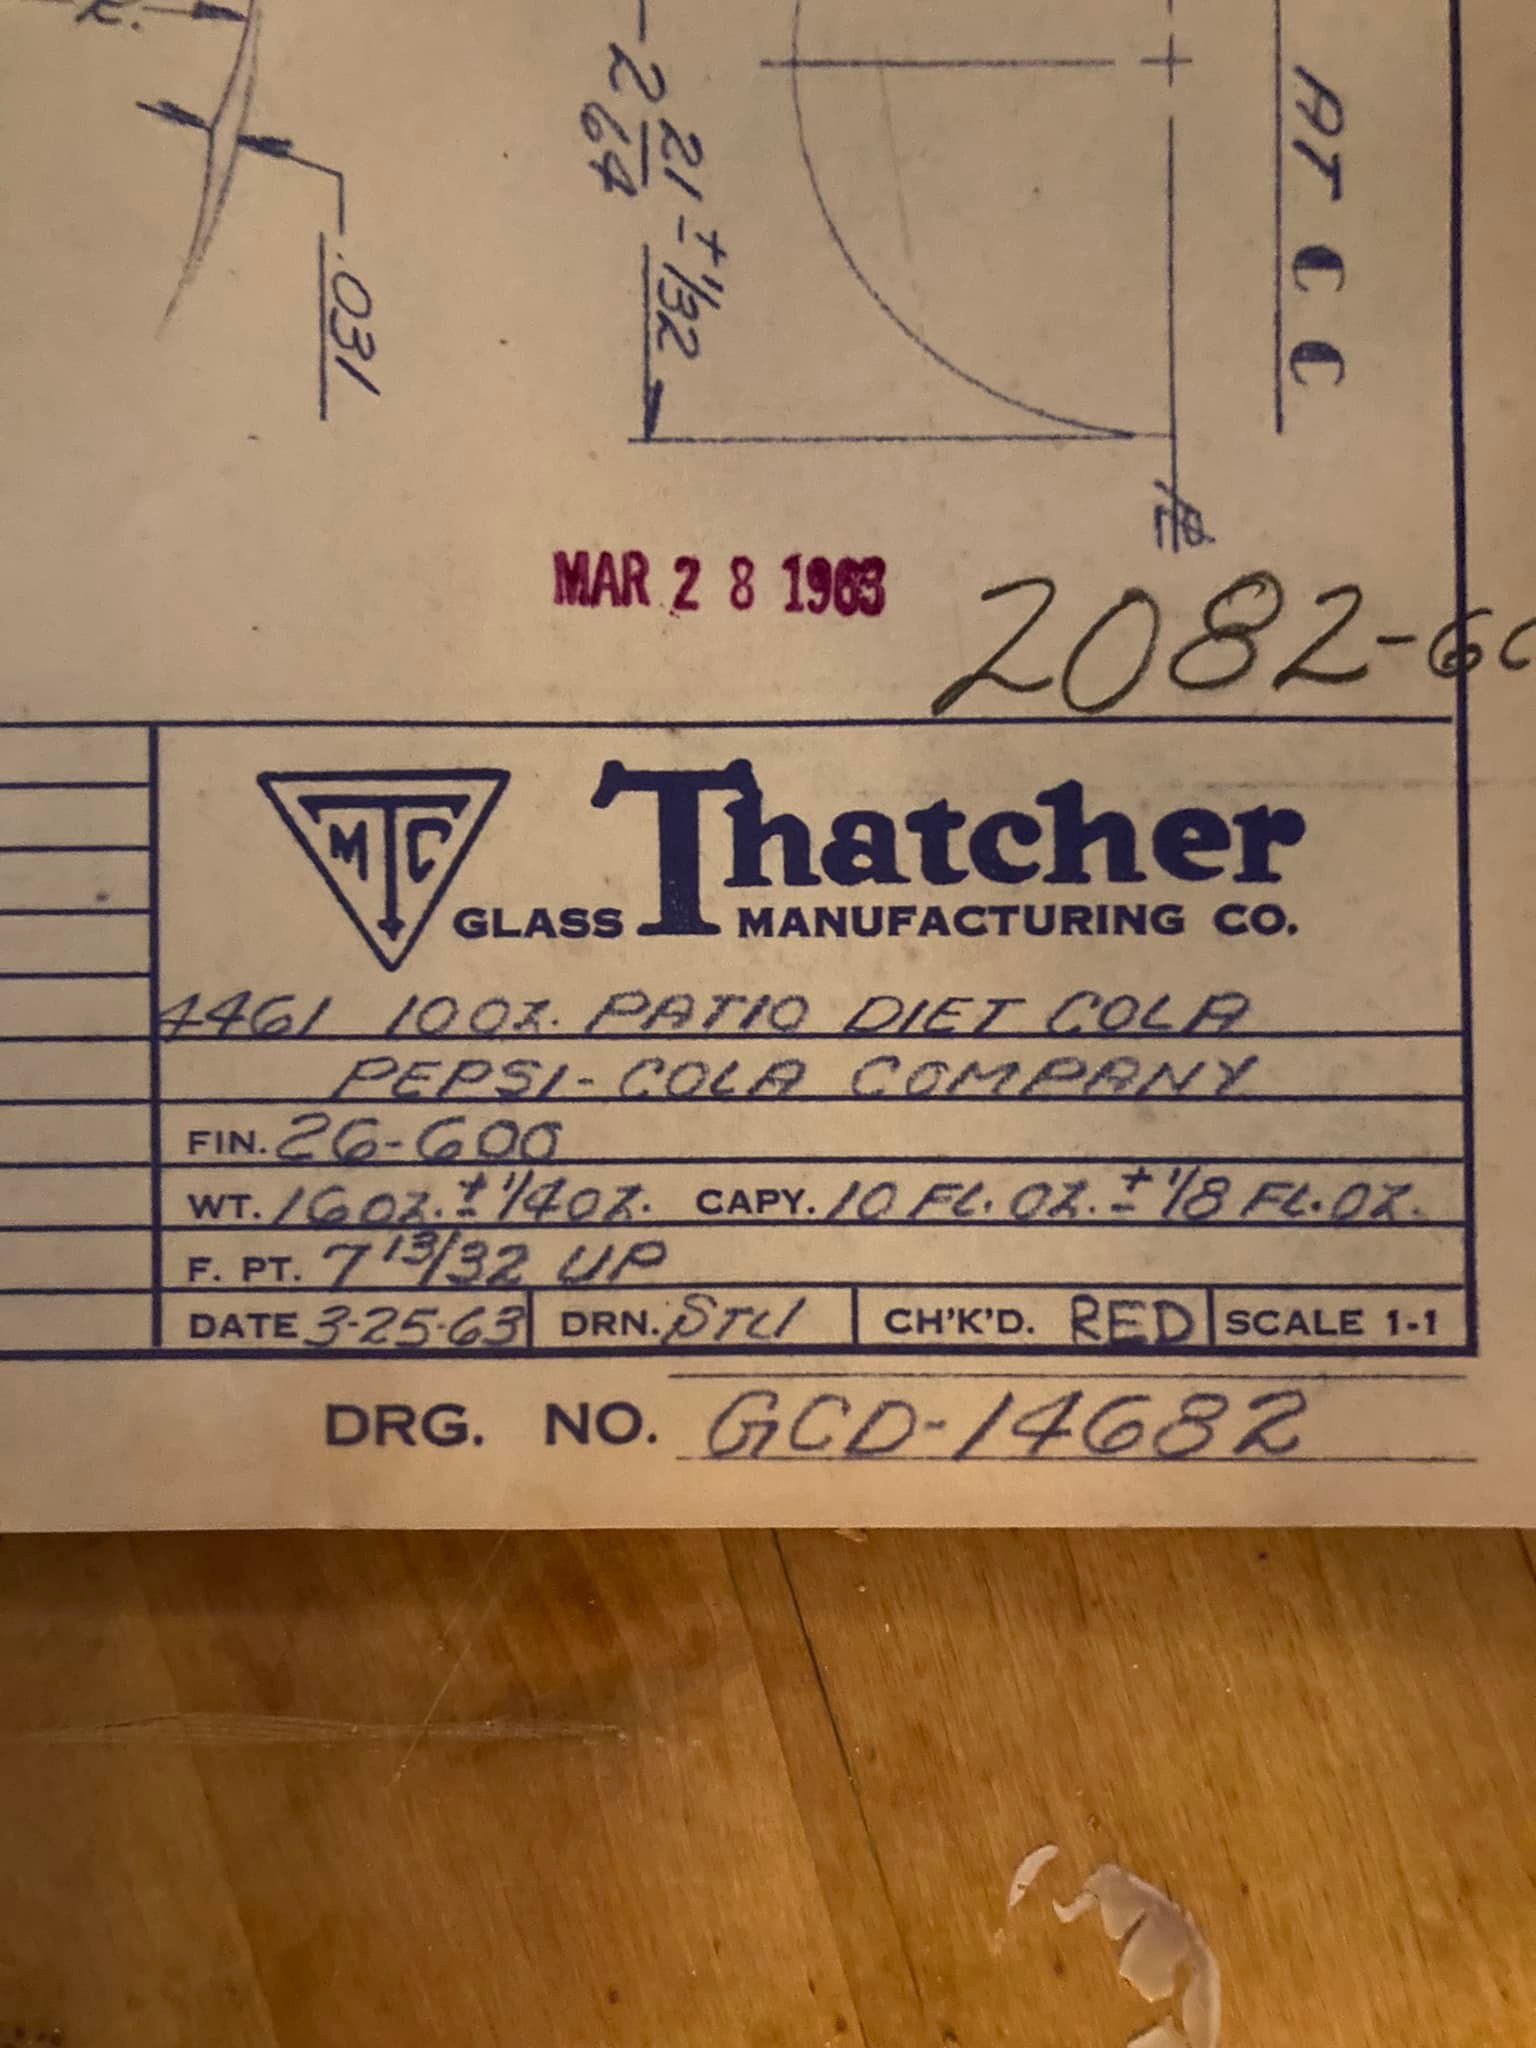 2 21/64 ± 1/32
.031
AT CC
MAR 28 1963
2082-6
MTC
Thatcher
GLASS MANUFACTURING CO.
4461 10 OZ. PATIO DIET COLA
PEPSI-COLA COMPANY
FIN. 26-600
WT. 16 OZ. ± 1/4 OZ. CAPY. 10 FL. OZ. ± 1/8 FL. OZ.
F. PT. 7 13/32 UP
DATE 3-25-63 DRN. STU CH'K'D. RED SCALE 1-1
DRG. NO. GCD-14682